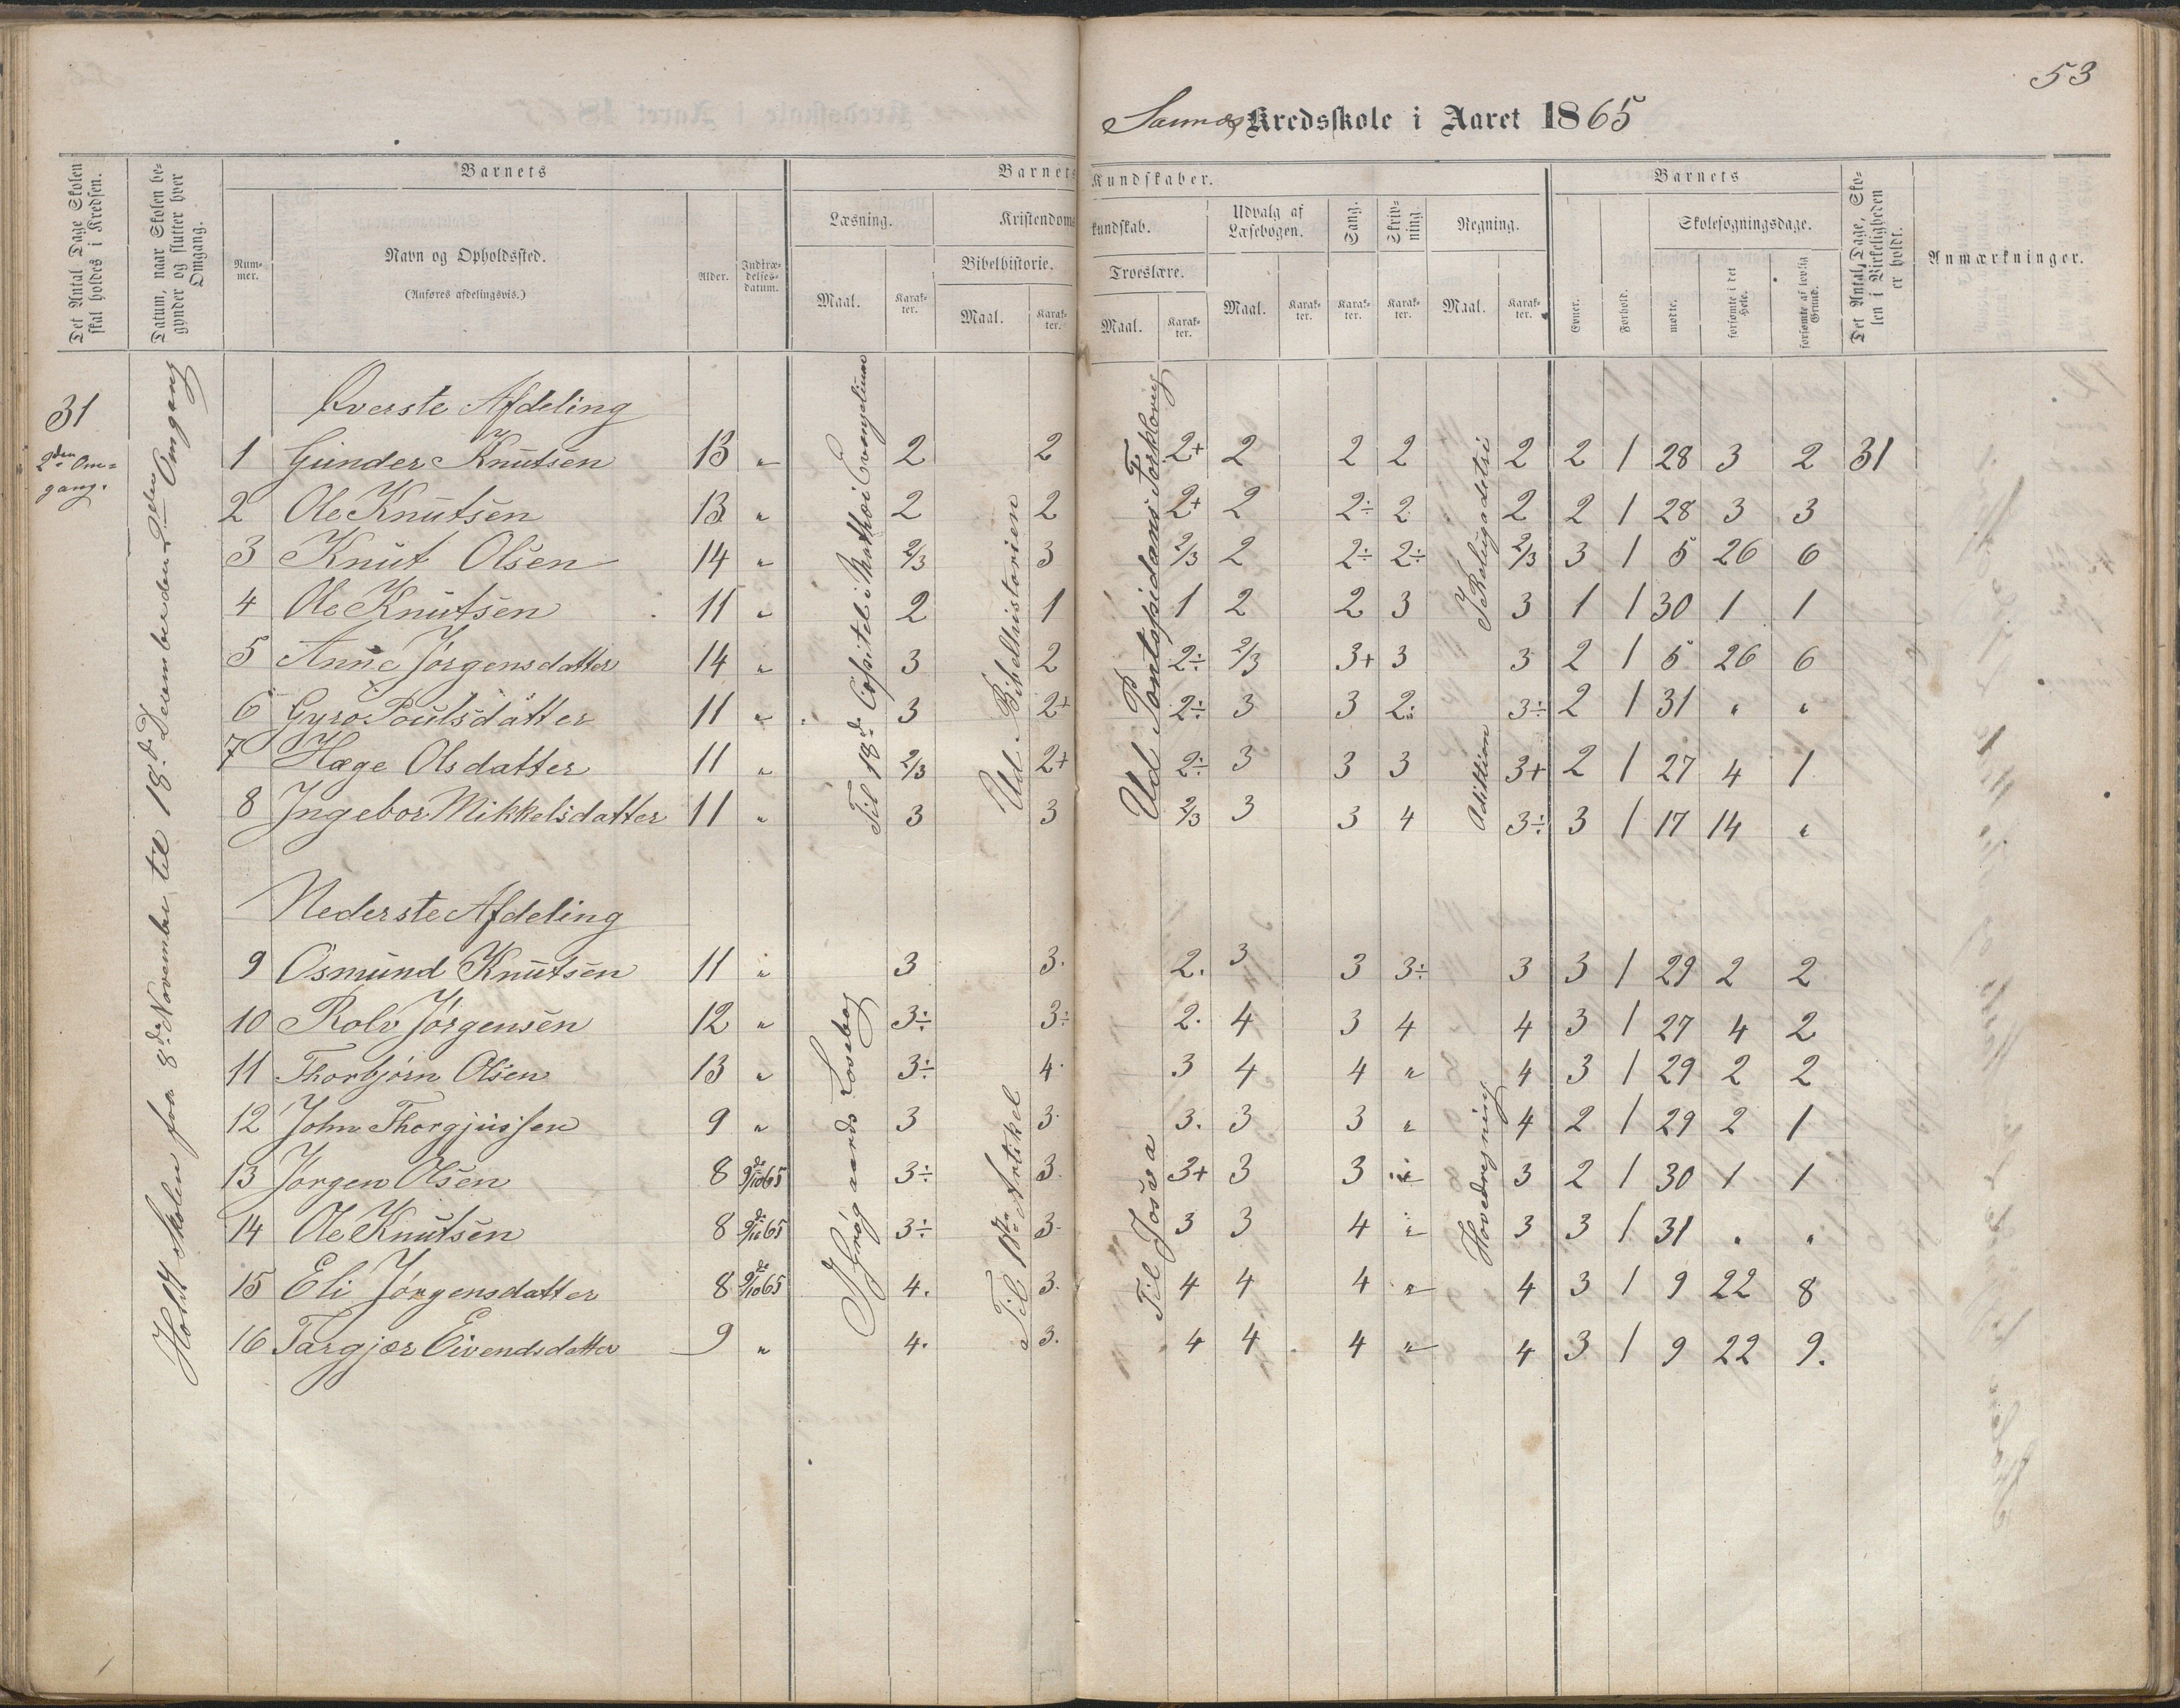 53
Sannes Kredsskole i Aaret 1865
Det Antal Dage Skolen skal holdes i Kredsen.
Datum, naar Skolen begynder og slutter hver Omgang.
Barnets
Nummer.
Navn og Opholdssted.
(Anføres afdelingsvis.)
Alder.
Indtrædelsesdatum.
Barnets Kundskaber.
Læsning.
Maal.
Karakter.
Kristendomskundskab.
Bibelhistorie.
Maal.
Karakter.
Troeslære.
Maal.
Karakter.
Udvalg af Læsebogen.
Maal.
Karakter.
Sang.
Karakter.
Skrivning.
Karakter.
Regning.
Maal.
Karakter.
Barnets
Evner.
Forhold.
Skolesøgningsdage.
mødte.
forsømte i det Hele.
forsømte af lovlig Grund.
Det Antal Dage, Skolen i Virkeligheden er holdt.
Anmærkninger.
31
2den Omgang.
Holdt Skolen fra 8de November til 18de December den 2den Omgang
Øverste Afdeling
1 Gunder Knutsen 13 " 2 2 2+ 2 2 2 2 2 1 28 3 2 31
2 Ole Knutsen 13 " 2 2 2+ 2 2÷ 2 2 2 1 28 3 3
3 Knut Olsen 14 " 2/3 3 2/3 2 2÷ 2÷ 2/3 3 1 5 26 6
4 Ole Knutsen 11 " 2 1 1 2 2 3 3 1 1 30 1 1
5 Anne Jørgensdatter 14 " 3 2 2÷ 2/3 3+ 3 3 2 1 5 26 6
6 Gyro Poulsdatter 11 " 3 2+ 2÷ 3 3 2÷ 3÷ 2 1 31 " "
7 Hæge Olsdatter 11 " 2/3 2+ 2÷ 3 3 3 3+ 2 1 27 4 1
8 Ingebor Mikkelsdatter 11 " 3 3 2/3 3 3 4 3÷ 3 1 17 14 "
Til 18de Capitel i Mathæi Evangelium
Ud Bibelhistorien
Ud Pontopidans Forklaring
I Religadetri
Adittion
Nederste Afdeling
9 Osmund Knutsen 11 " 3 3. 2. 3 3 3÷ 3 3 1 29 2 2
10 Rolv Jørgensen 12 " 3÷ 3÷ 2. 4 3 4 4 3 1 27 4 2
11 Thorbjørn Olsen 13 " 3÷ 4. 3 4 4 " 4 3 1 29 2 2
12 John Thorgjussen 9 " 3 3. 3. 3 3 " 4 2 1 29 2 1
13 Jørgen Olsen 8 9de/10 65 3÷ 3. 3+ 3 3 " 3 2 1 30 1 1
14 Ole Knutsen 8 9de/10 65 3÷ 3. 3 3 4 " 3 3 1 31 " "
15 Eli Jørgensdatter 8 9de/10 65 4. 3. 4 4 4 " 4 3 1 9 22 8
16 Targjær Eivendsdatter 9 " 4. 3. 4 4 4 " 4 3 1 9 22 9.
I Grøgaards Læsebog
Til 1ste Artikel
Til Josva
Hovedregning